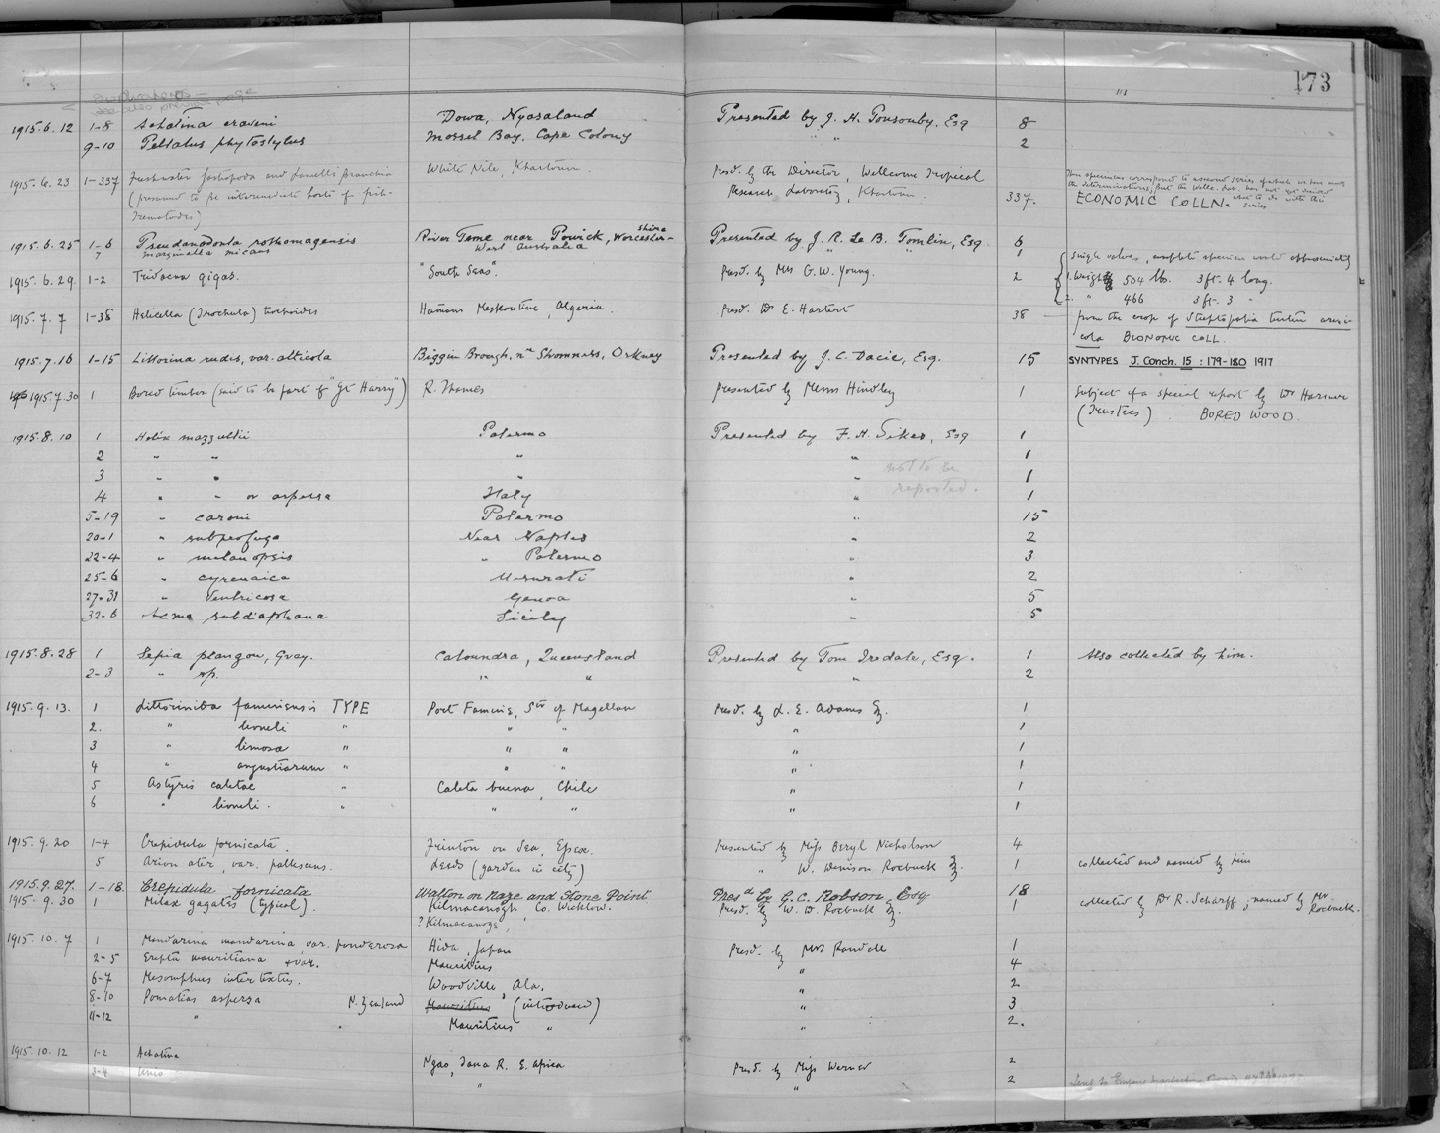 173
see also previous page
1915.6.12 1-8 Achatina craveni Dowa, Nyasaland Presented by J. H. Ponsonby, Esq 8
9-10 Peltatus phytostylus Mossel Bay, Cape Colony " " 2
1915.6.23 1-337 Freshwater Gastropoda and Lamellibranchia White Nile, Khartoum. Presd. by the Director, Wellcome Tropical
(presumed to be intermediate hosts of Research Laboratory, Khartoum. 337. ECONOMIC COLLN.
Trematodes)
1915.6.25 1-6 Pseudanodonta rothomagensis River Teme near Powick, Worcester-shire Presented by J. R. Le B. Tomlin, Esq. 6
7 Marginella micans West Australia " " 1
Single valves, complete specimen would approximately
1915.6.29. 1-2 Tridacna gigas. "South Seas". Presd. by Mrs G. W. Young. 2 1. Weight 504 lbs. 3 ft. 4 long.
2. " 466 3 ft. 3 "
1915.7.7 1-38 Helicella (Trochula) trochoides Hamman Meskoutine, Algeria. Presd. Dr E. Hartert 38 from the crop of Streptopelia turtur areni-
cola BIONOMIC COLL.
1915.7.16 1-15 Littorina rudis, var. alticola Biggin Brough, nr Stromness, Orkney Presented by J. C. Dacie, Esq. 15 SYNTYPES J. Conch. 15 : 179-180 1917
1915.7.30 1 Bored timber (said to be part of "Gt Harry") R. Thames Presented by Messrs Hindley 1 Subject of a special report by Dr Harmer
(Trustees) BORED WOOD.
1915.8.10 1 Helix mazzullii Palermo Presented by F. H. Sikes, Esq 1
2 " " " " 1
not to be
3 " " " " 1
reported.
4 " " or aspersa Italy " 1
5-19 " caroni Palermo " 15
20-1 " subprofuga Near Naples " 2
22-4 " melanopsis " Palermo " 3
25-6 " cyrenaica Misurati " 2
27-31 " ventricosa Genoa " 5
32-6 Acme subdiaphana Sicily " 5
1915.8.28 1 Sepia plangon, Gray. Caloundra, Queensland Presented by Tom Iredale, Esq. 1 Also collected by him.
2-3 " sp. " " " 2
1915.9.13. 1 Littorinida faminensis TYPE Port Famine, Str of Magellan Presd. by L. E. Adams Esq. 1
2. " lioneli " " " " 1
3 " limosa " " " " 1
4 " angustiarum " " " " 1
5 Astyris caletae " Caleta buena, Chile " 1
6 " lioneli. " " " " 1
1915.9.20 1-4 Crepidula fornicata. Frinton on Sea, Essex. Presented by Miss Beryl Nicholson 4
5 Arion ater, var. pallescens. Leeds (garden in city) " W. Denison Roebuck Esq. 1 collected and named by him
1915.9.27. 1-18. Crepidula fornicata Walton on Naze and Stone Point Presd by G. C. Robson, Esq 18
1915.9.30 1 Milax gagates (typical). Kilmacanogh, Co. Wicklow. Presd. by W. D. Roebuck Esq. 1 collected by Dr R. Scharff; named by Mr
Roebuck.
? Kilmacanoge,
1915.10.7 1 Mandarina mandarina, var. ponderosa Hida, Japan Presd. by Mrs Randall 1
2-5 Erepta mauritiana + var. Mauritius " 4
6-7 Mesomphus intertextus. Woodville, Ala. " 2
8-10 Pomatias aspersa N. Zealand Mauritius (introduced) " 3
11-12 " " Mauritius " " 2.
1915.10.12 1-2 Achatina Ngao, Tana R. E. Africa Presd. by Miss Werner 2
3-4 Unio " " 2